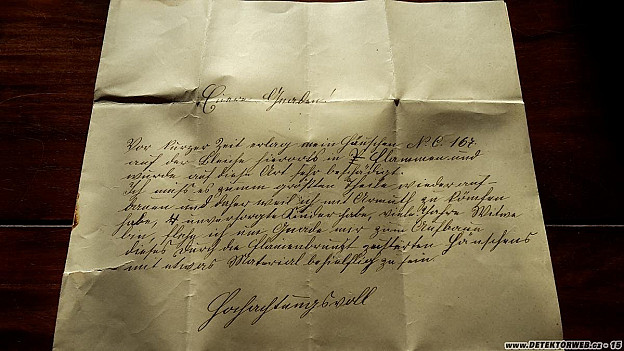 Euere Gnaden!
Vor kurzer Zeit erlag mein Häuschen No C. 167.
auf der Bleiche hierorts in Flammen und
wurde auf diese Art sehr beschädigt.
Ich muß es zumm größten Theile wieder auf-
bauen und daher weil ich mit Armuth zu kämfen
habe, 4 unversorgte Kinder habe, viele Jahre Witwe
bin, flehe ich um Gnade mir zum Aufbaue
dieses durch die zerstörten Häuschens
mit etwas Material behilflich zu sein
Hochachtungsvoll
www.DETEKTORWEB.cz • 15